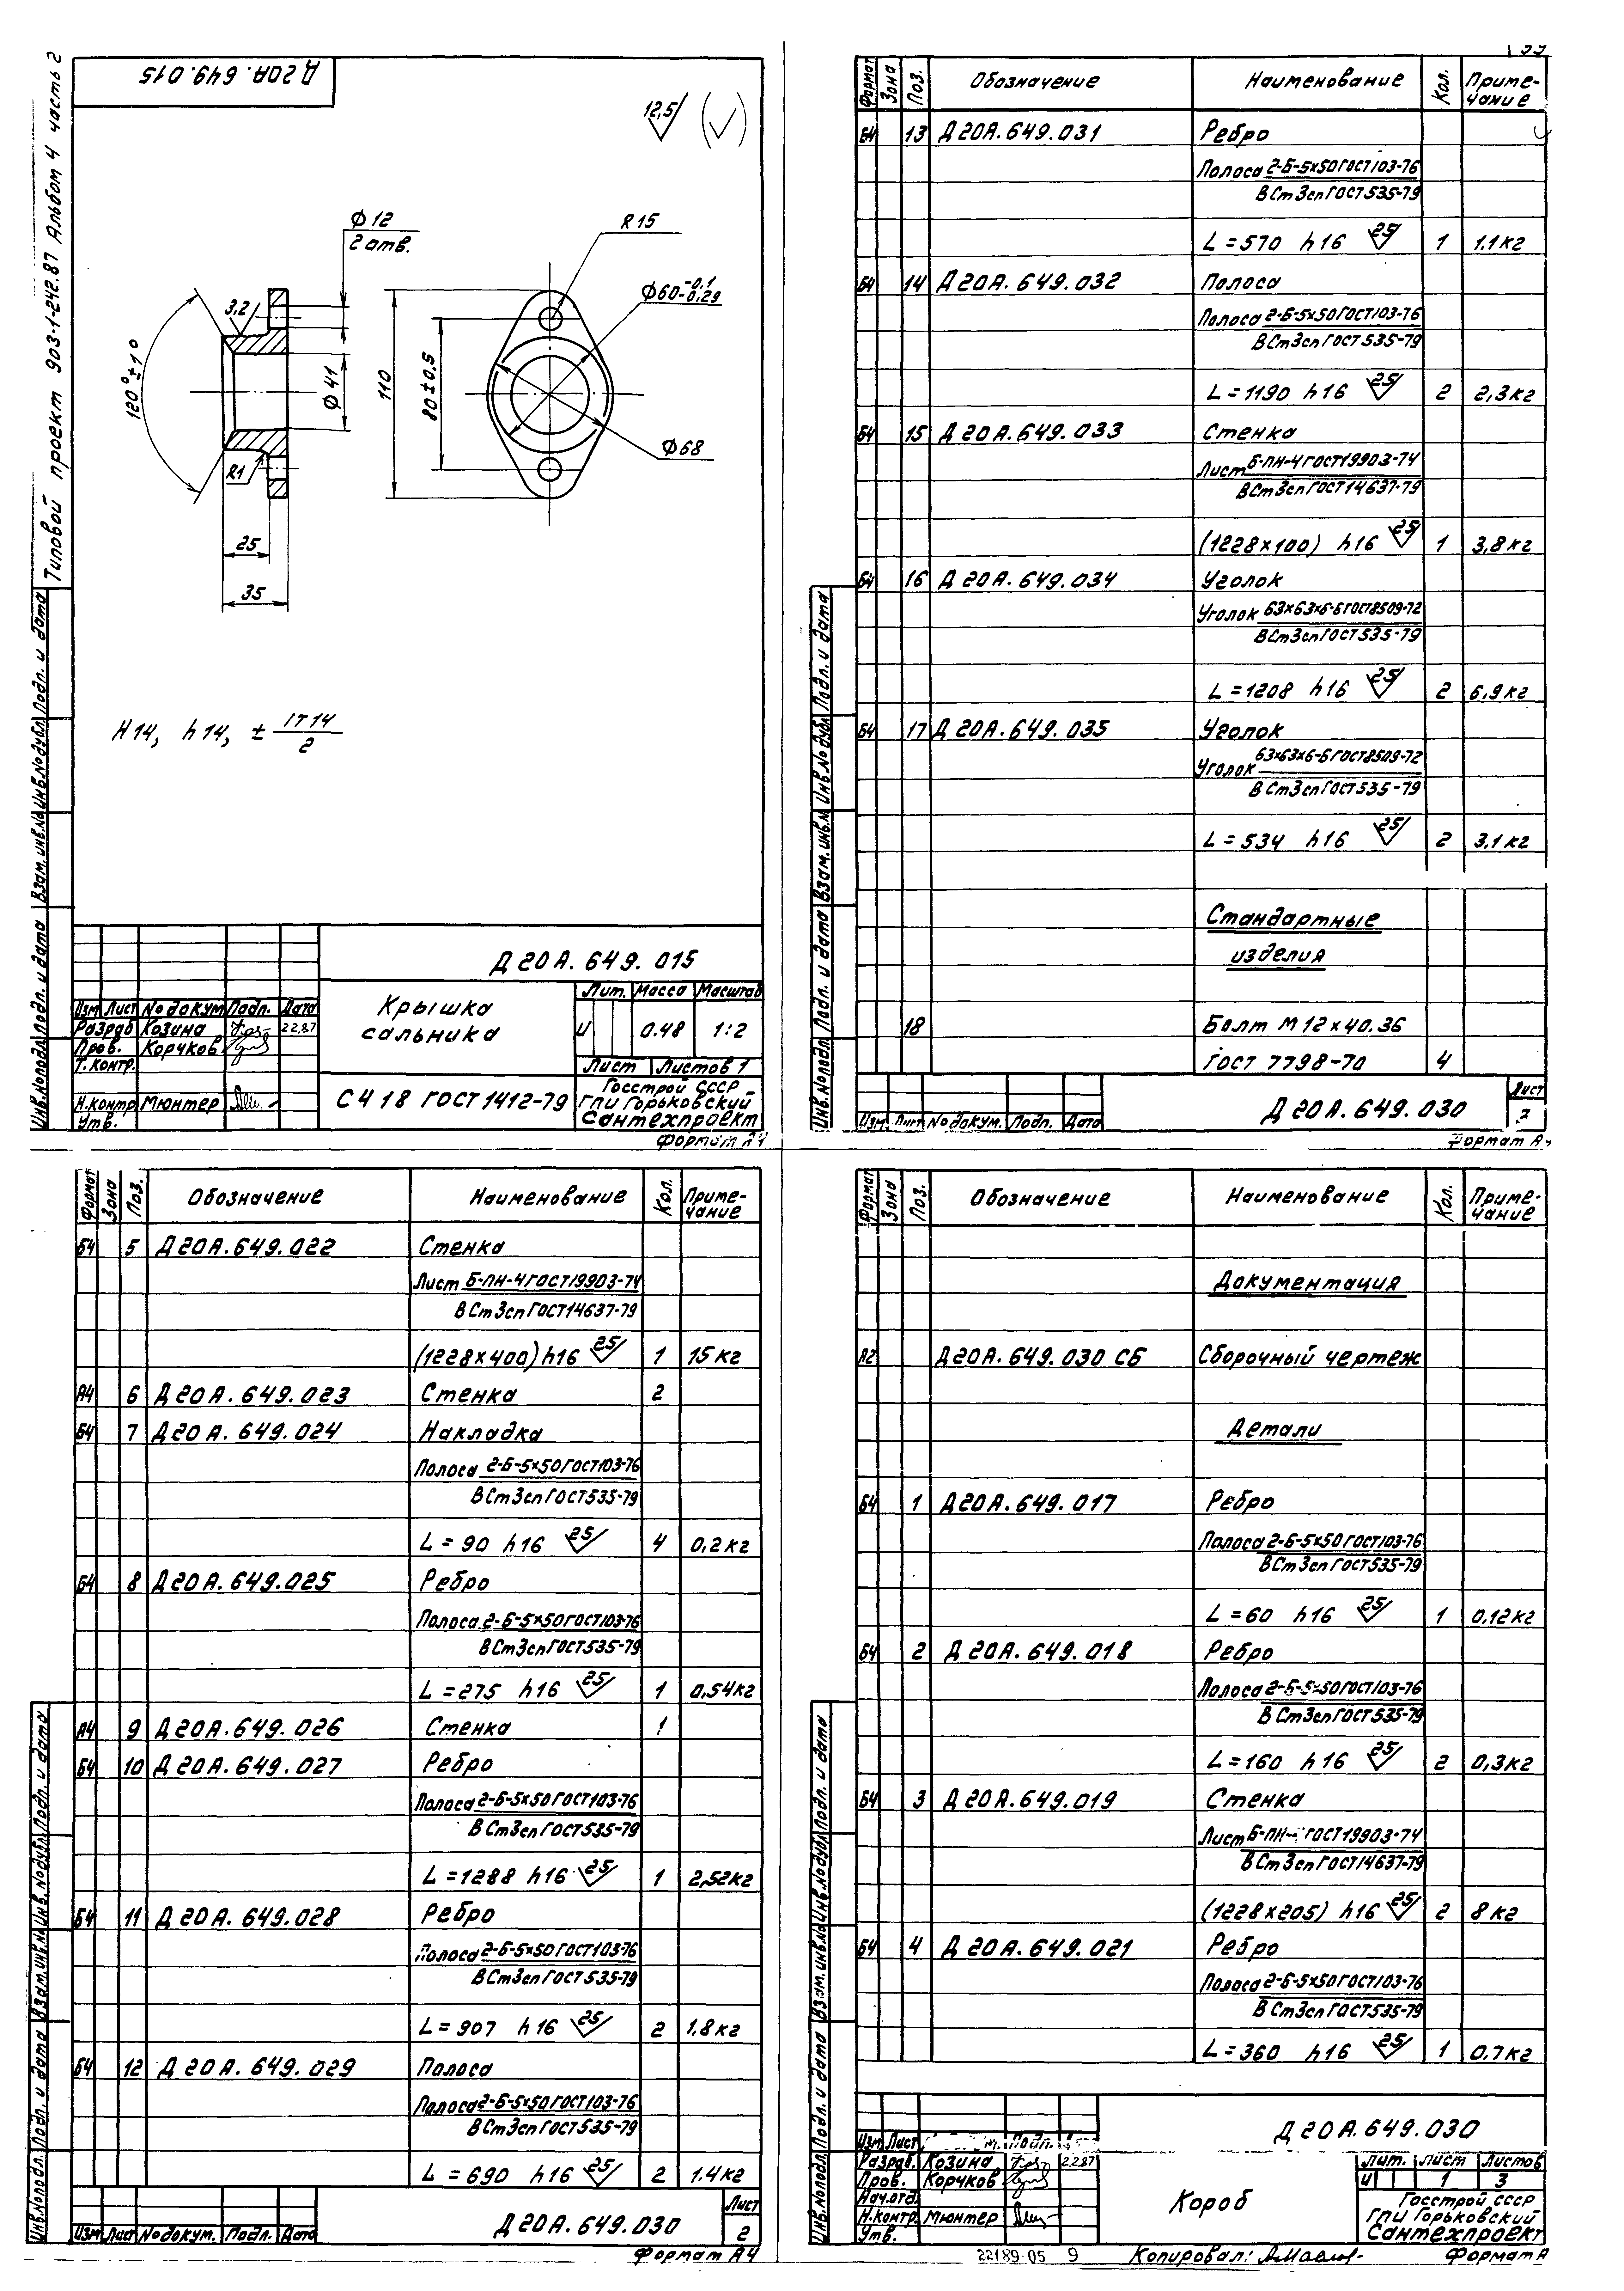 Типовой проект 903-1-242.87 Альбом 4 часть 2
Д20А.649.015
12,5 (√)
Φ12
2 отв.
R15
Φ60-0,1
-0,29
3,2
120°±1°
Φ41
110
80±0,5
Φ68
R1
25
35
H14, h14, ± IT14
2
Инв.№подл. Подп. и дата Взам.инв.№ Инв.№дубл. Подп. и дата
Д20А.649.015
Изм Лист №докум Подп. Дата
Разраб Козина 2.2.87
Пров. Корчков
Т.контр.
Н.контр Мюнтер
Утв.
Крышка
сальника
Лит. Масса Масштаб
И 0.48 1:2
Лист Листов 1
СЧ 18 ГОСТ 1412-79
Госстрой СССР
ГПИ Горьковский
Сантехпроект
Формат А4
Формат Зона Поз. Обозначение Наименование Кол. Приме-
чание
Б4 13 Д20А.649.031 Ребро
Полоса 2-Б-5х50ГОСТ103-76
ВСт3сп ГОСТ535-79
L=570 h16 25 1 1.1кг
Б4 14 Д20А.649.032 Полоса
Полоса 2-Б-5х50ГОСТ103-76
ВСт3сп ГОСТ535-79
L=1190 h16 25 2 2,3кг
Б4 15 Д20А.649.033 Стенка
Лист Б-ПН-4ГОСТ19903-74
ВСт3сп ГОСТ14637-79
(1228х100) h16 25 1 3,8кг
Б4 16 Д20А.649.034 Уголок
Уголок 63х63х6-БГОСТ8509-72
ВСт3сп ГОСТ535-79
L=1208 h16 25 2 6,9кг
Б4 17 Д20А.649.035 Уголок
Уголок 63х63х6-БГОСТ8509-72
ВСт3сп ГОСТ535-79
L=534 h16 25 2 3,1кг
Стандартные
изделия
18 Болт М12х40.36
ГОСТ 7798-70 4
Инв.№подл. Подп. и дата Взам.инв.№ Инв.№дубл. Подп. и дата
Изм. Лист №докум. Подп. Дата
Д20А.649.030
Лист
Формат А4
Формат Зона Поз. Обозначение Наименование Кол. Приме-
чание
Б4 5 Д20А.649.022 Стенка
Лист Б-ПН-4ГОСТ19903-74
ВСт3сп ГОСТ14637-79
(1228х400)h16 25 1 15кг
А4 6 Д20А.649.023 Стенка 2
Б4 7 Д20А.649.024 Накладка
Полоса 2-Б-5х50ГОСТ103-76
ВСт3сп ГОСТ535-79
L=90 h16 25 4 0,2кг
Б4 8 Д20А.649.025 Ребро
Полоса 2-Б-5х50ГОСТ103-76
ВСт3сп ГОСТ535-79
L=275 h16 25 1 0,54кг
А4 9 Д20А.649.026 Стенка 1
Б4 10 Д20А.649.027 Ребро
Полоса 2-Б-5х50ГОСТ103-76
ВСт3сп ГОСТ535-79
L=1288 h16 25 1 2,52кг
Б4 11 Д20А.649.028 Ребро
Полоса 2-Б-5х50ГОСТ103-76
ВСт3сп ГОСТ535-79
L=907 h16 25 2 1,8кг
Б4 12 Д20А.649.029 Полоса
Полоса 2-Б-5х50ГОСТ103-76
ВСт3сп ГОСТ535-79
L=690 h16 25 2 1.4кг
Инв.№подл. Подп. и дата Взам.инв.№ Инв.№дубл. Подп. и дата
Изм Лист №докум. Подп. Дата
Д20А.649.030
Лист
2
Формат А4
Формат Зона Поз. Обозначение Наименование Кол. Приме-
чание
Документация
А2 Д20А.649.030 СБ Сборочный чертеж
Детали
Б4 1 Д20А.649.017 Ребро
Полоса 2-Б-5х50ГОСТ103-76
ВСт3сп ГОСТ535-79
L=60 h16 25 1 0,12кг
Б4 2 Д20А.649.018 Ребро
Полоса 2-Б-5х50ГОСТ103-76
ВСт3сп ГОСТ535-79
L=160 h16 25 2 0,3кг
Б4 3 Д20А.649.019 Стенка
Лист Б-ПН- ГОСТ19903-74
ВСт3сп ГОСТ14637-79
(1228х205) h16 25 2 8кг
Б4 4 Д20А.649.021 Ребро
Полоса 2-Б-5х50ГОСТ103-76
ВСт3сп ГОСТ535-79
L=360 h16 25 1 0.7кг
Инв.№подл. Подп. и дата Взам.инв.№ Инв.№дубл. Подп. и дата
Д20А.649.030
Изм Лист Подп.
Разраб. Козина 2.2.87
Пров. Корчков
Нач.отд.
Н.контр. Мюнтер
Утв.
Короб
Лит. Лист Листов
И 1 3
Госстрой СССР
ГПИ Горьковский
Сантехпроект
22189-05 9 Копировал: Формат А